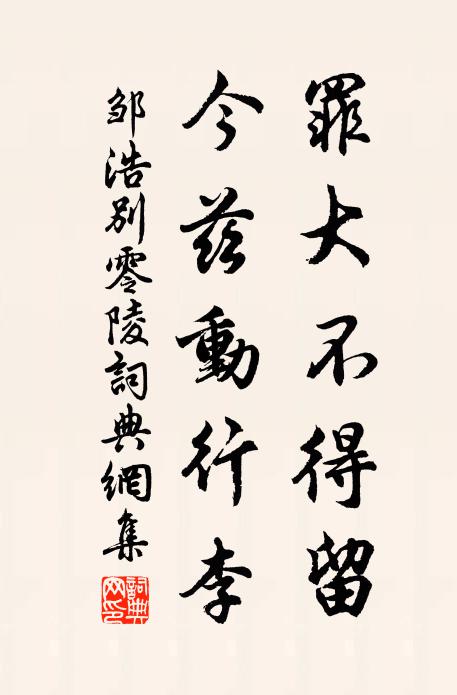 罪大不得留
今茲動行李
鄒浩別零陵詞典網集
詞典網印